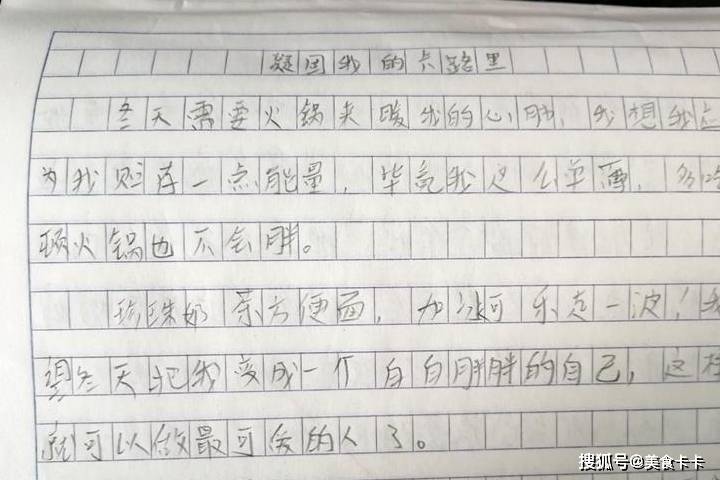 凝回我的卡路里
冬天需要火锅来暖我的心肺，我想我应
为我贮存一点能量，毕竟我这么单薄，多吃
顿火锅也不会胖。
珍珠奶茶方便面，加冰可乐走一波！我
想冬天把我变成一个白白胖胖的自己，这样
就可以做最可爱的人了。
搜狐号@美食卡卡